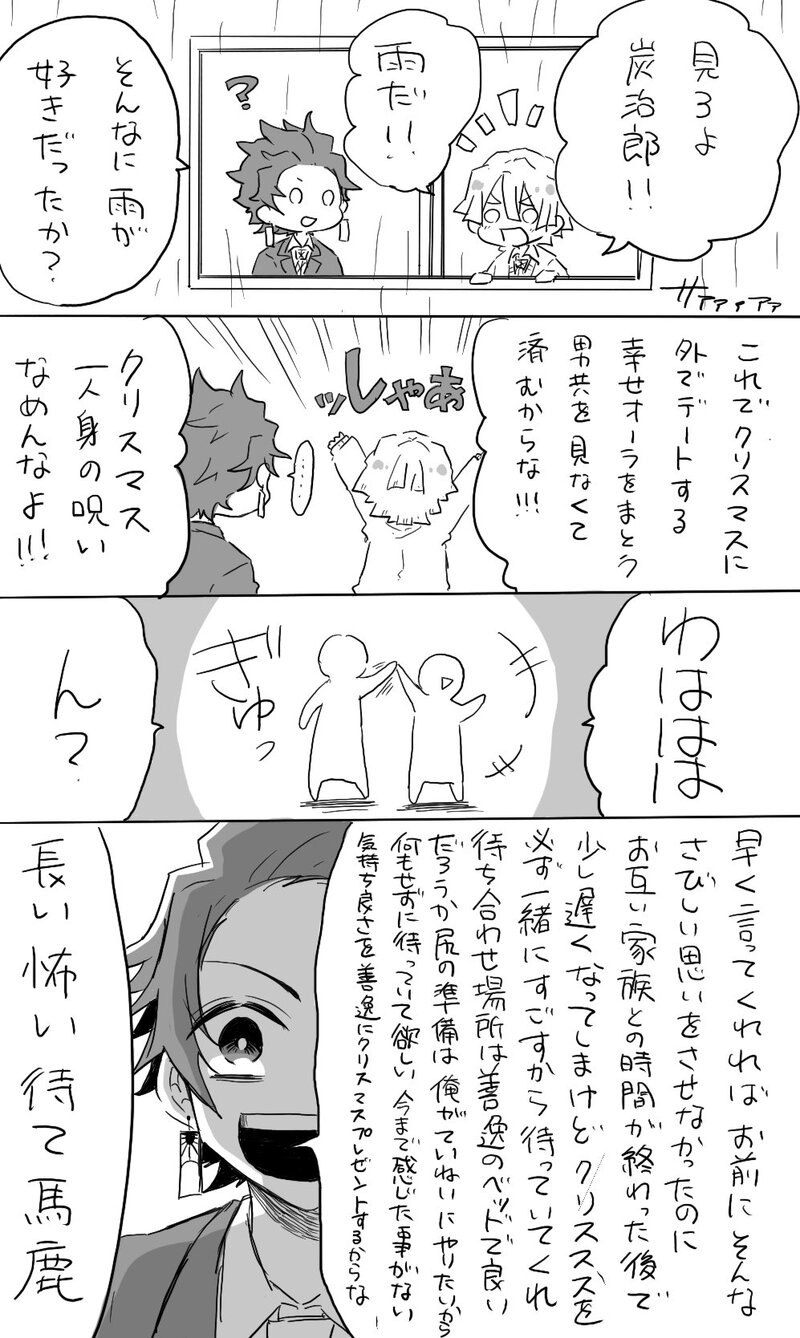 見ろよ
炭治郎!!
雨だ!!
?
そんなに雨が
好きだったか?
サァァィァァ
これでクリスマスに
外でデートする
幸せオーラをまとう
男共を見なくて
済むからな!!!
ッしゃあ
....
クリスマス
一人身の呪い
なめんなよ!!!
わははは
ぎゅっ
ん?
早く言ってくれればお前にそんな
さびしい思いをさせなかったのに
お互い家族との時間が終わった後で
少し遅くなってしまけどクリススズを
必ず一緒にすごすから待っていてくれ
待ち合わせ場所は善逸のベッドで良い
だろうか尻の準備は俺がていねいにやりたいから
何もせずに待っていて欲しい今まで感じた事がない
気持ち良さを善逸にクリスマスプレゼントするからな
長い怖い待て馬鹿